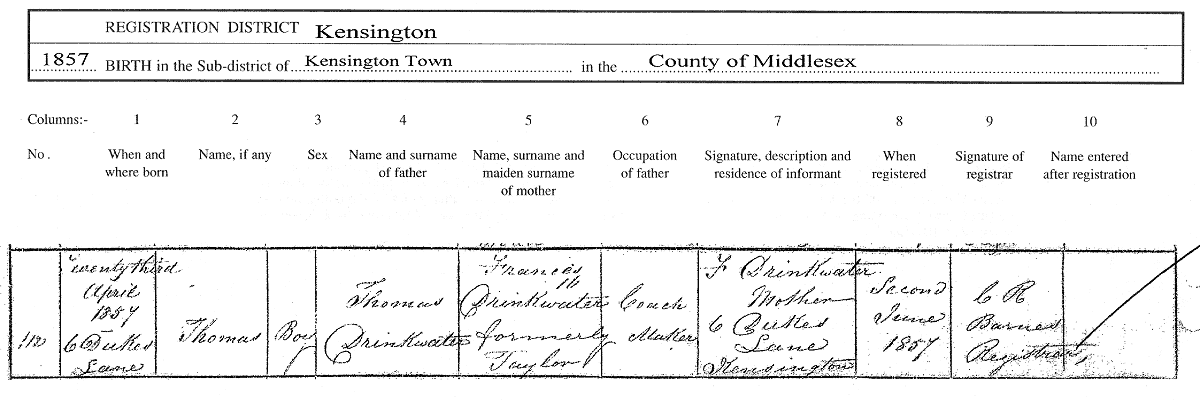 REGISTRATION DISTRICT Kensington
1857 BIRTH in the Sub-district of Kensington Town in the County of Middlesex
Columns:- 1 2 3 4 5 6 7 8 9 10
No. When and where born
Name, if any
Sex
Name and surname of father
Name, surname and maiden surname of mother
Occupation of father
Signature, description and residence of informant
When registered
Signature of registrar
Name entered after registration
112
Twenty third
April
1857
6 Dukes
Lane
Thomas
Boy
Thomas
Drinkwater
Frances
Drinkwater
formerly
Taylor
Coach
Maker
F Drinkwater
Mother
6 Dukes
Lane
Kensington
Second
June
1857
C R
Barnes
Registrar